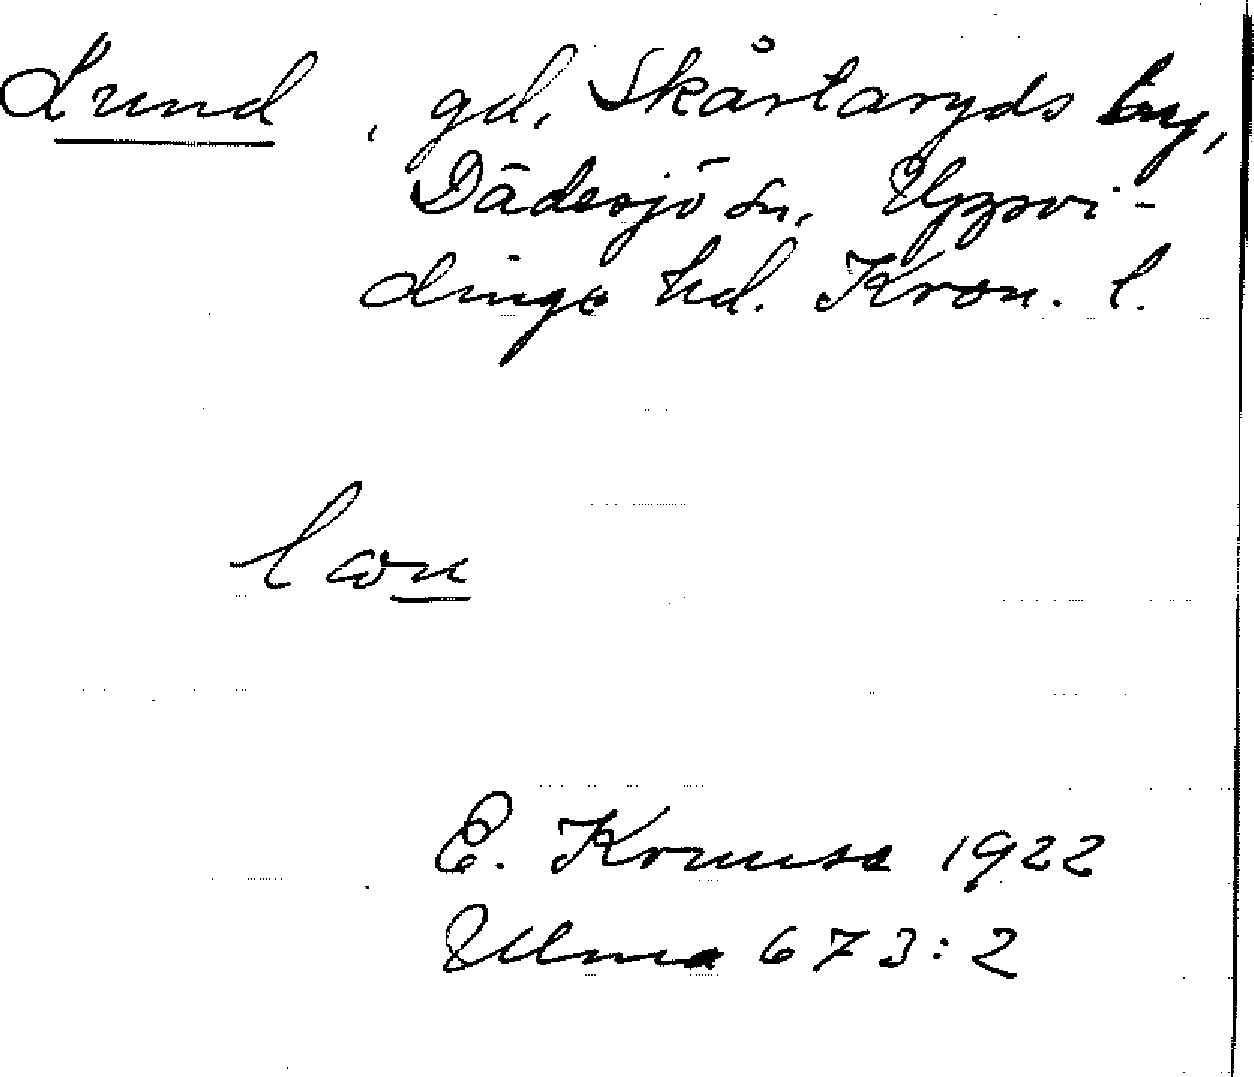 Lund, gd, Skårtaryds by,
Dädesjö sn, Uppvi-
dinge hd. Kron. l.
E. Kruuse 1922
Ulma 673:2